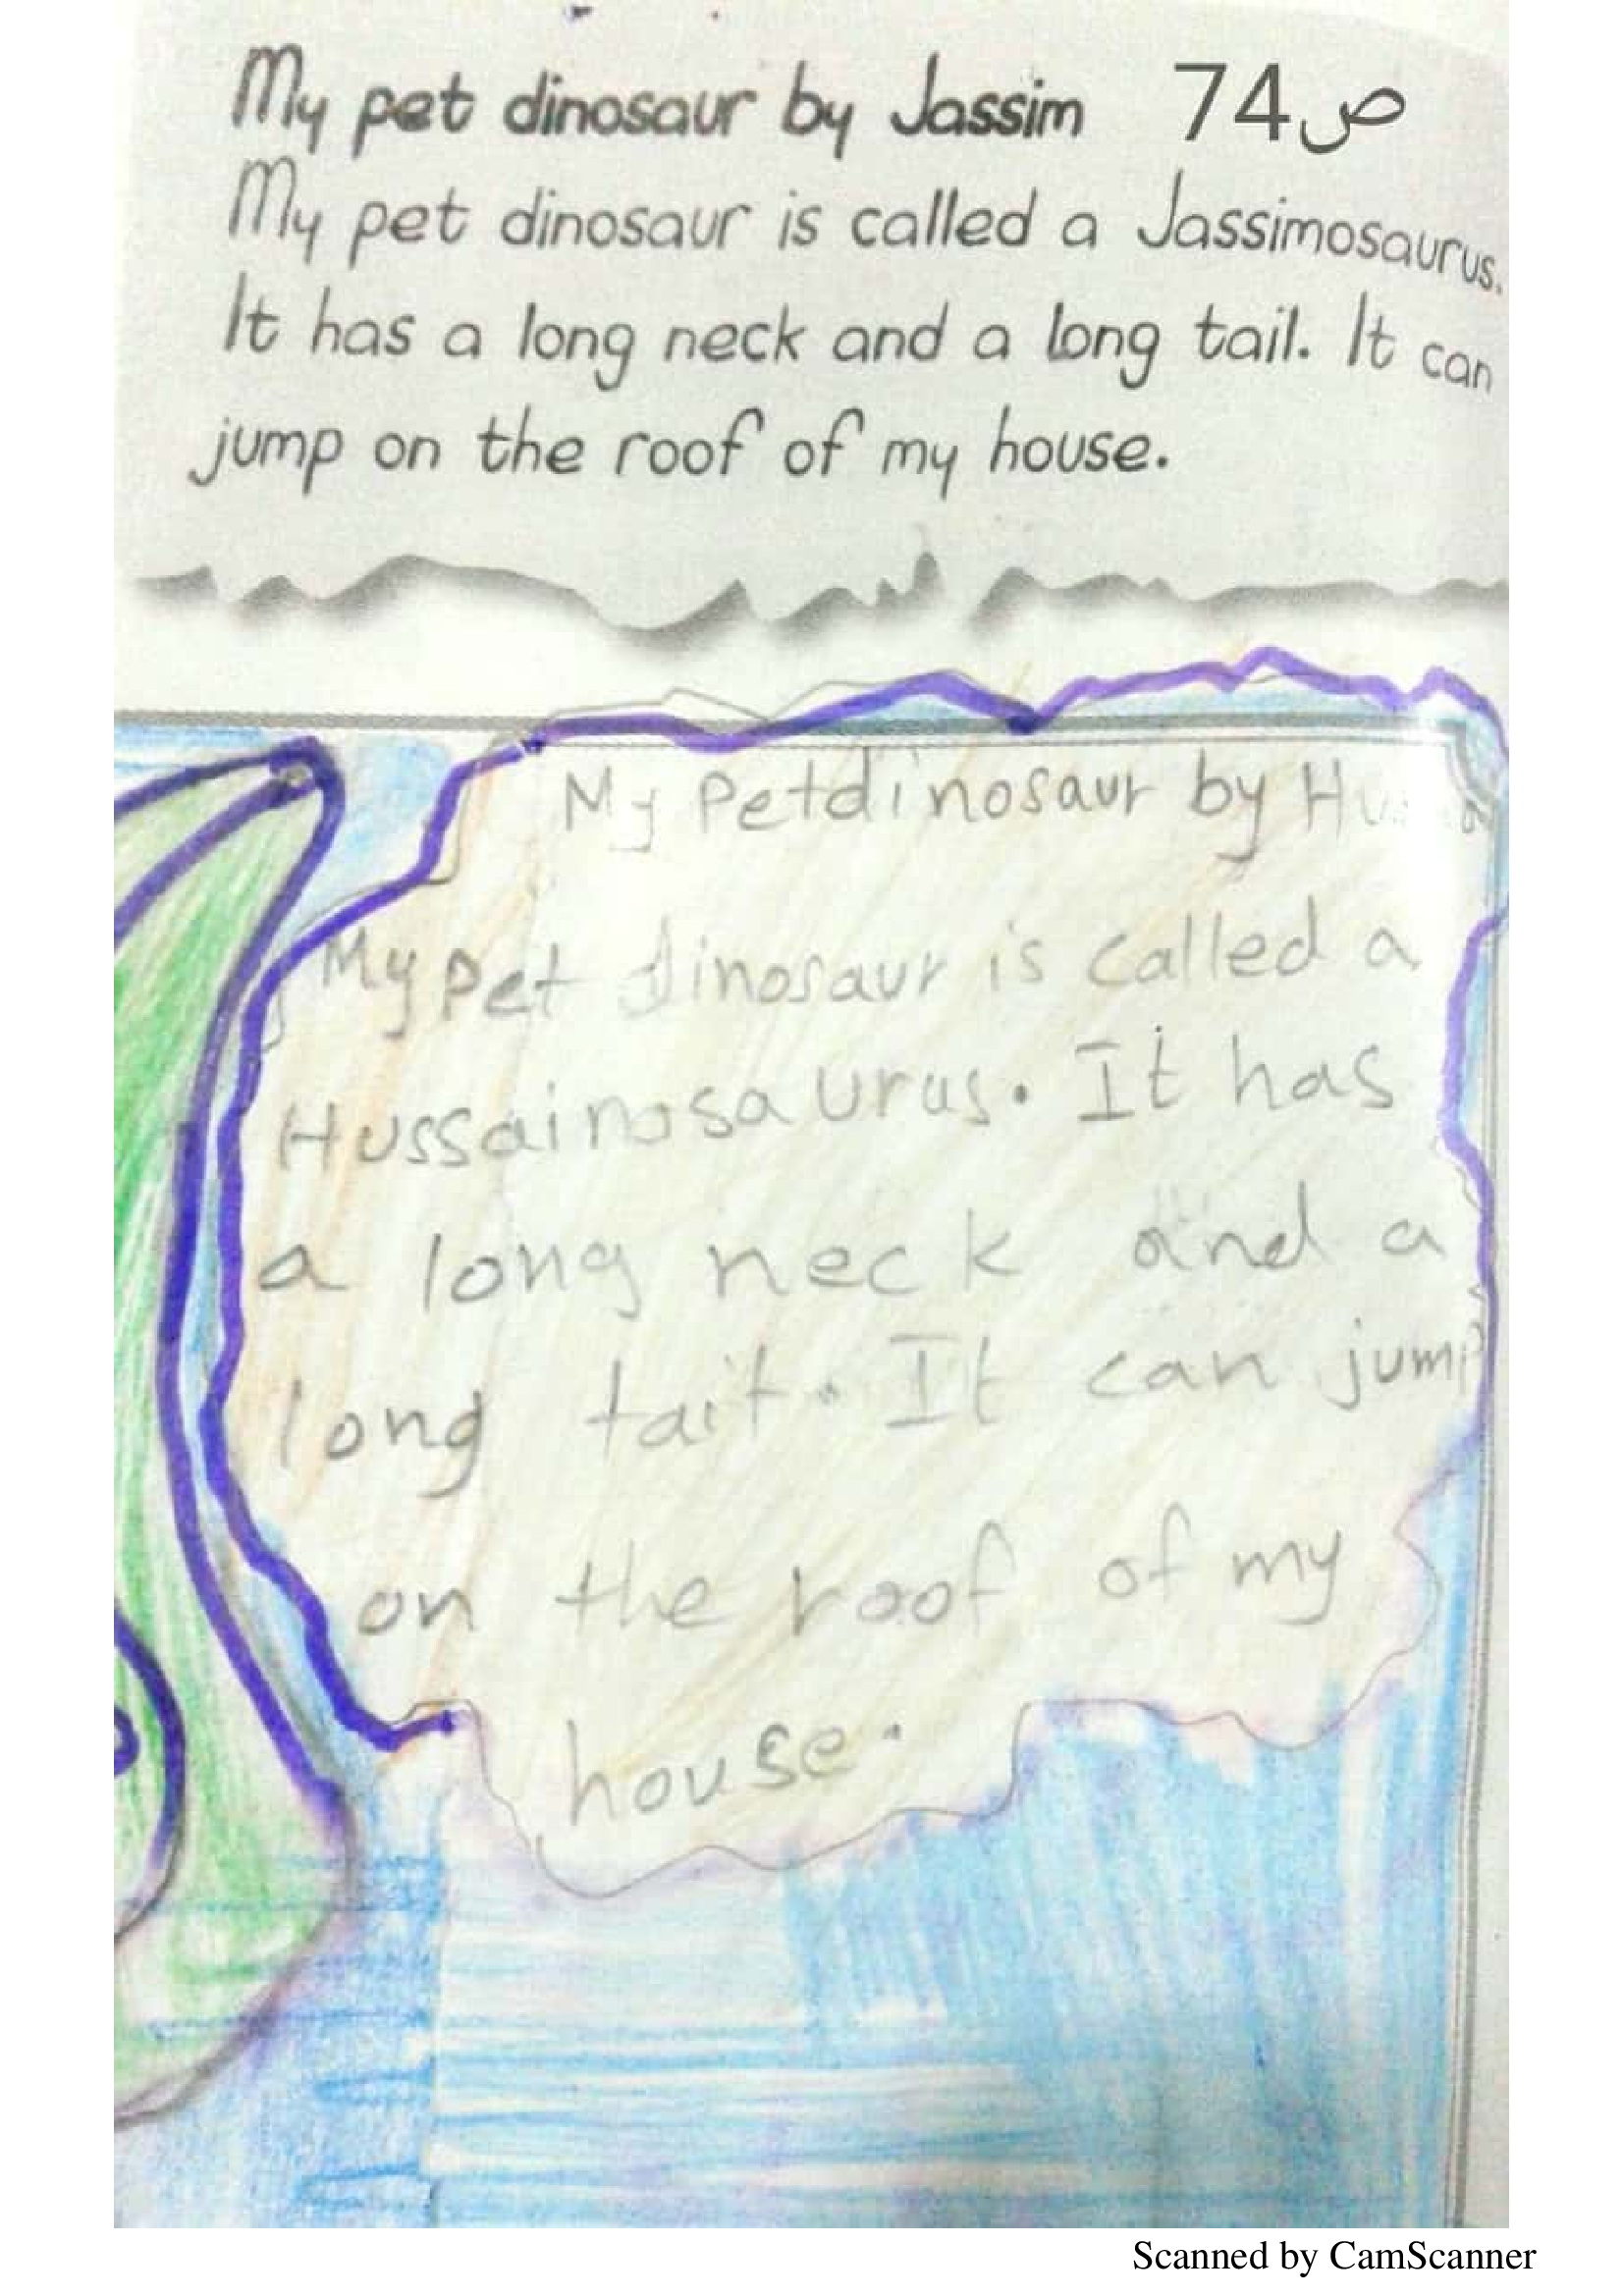 My pet dinosaur by Jassim 74ص
My pet dinosaur is called a Jassimosaurus.
It has a long neck and a long tail. It can
jump on the roof of my house.
My Petdinosaur by
My pet dinosaur is called a
Hussainosaurus. It has
a long neck and a
long tait. It can jump
on the roof of my
house.
Scanned by CamScanner